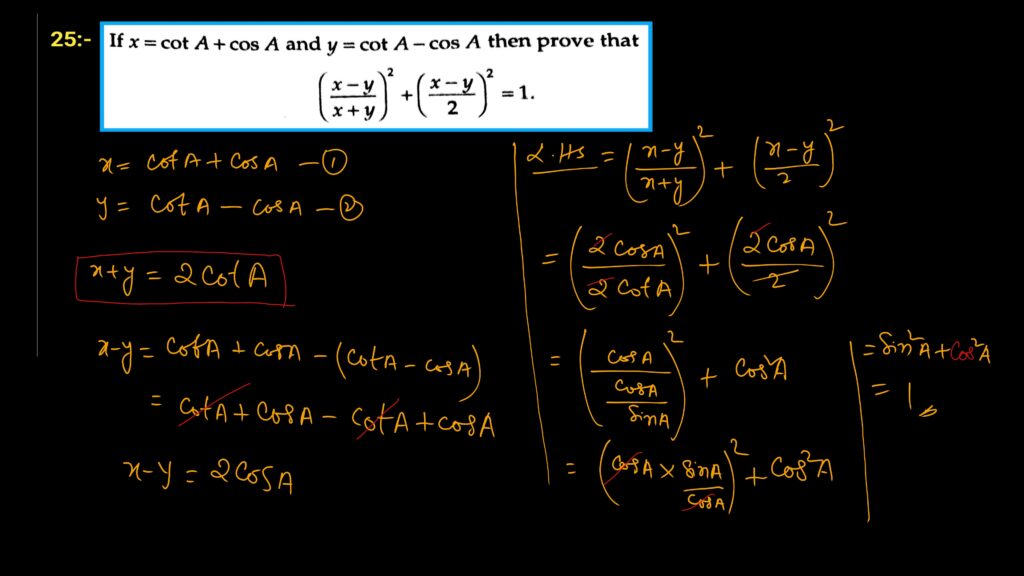 25:- If x = cot A + cos A and y = cot A − cos A then prove that
((x − y)/(x + y))² + ((x − y)/2)² = 1.
x = cotA + cosA — ①
y = cotA − cosA — ②
x+y = 2cotA
x-y = cotA + cosA − (cotA − cosA)
= cotA + cosA − cotA + cosA
x-y = 2cosA
L.HS = ((x-y)/(x+y))² + ((x-y)/2)²
= (2cosA/2cotA)² + (2cosA/2)²
= (cosA/(cosA/sinA))² + cos²A
= (cosA × sinA/cosA)² + cos²A
= sin²A + cos²A
= 1